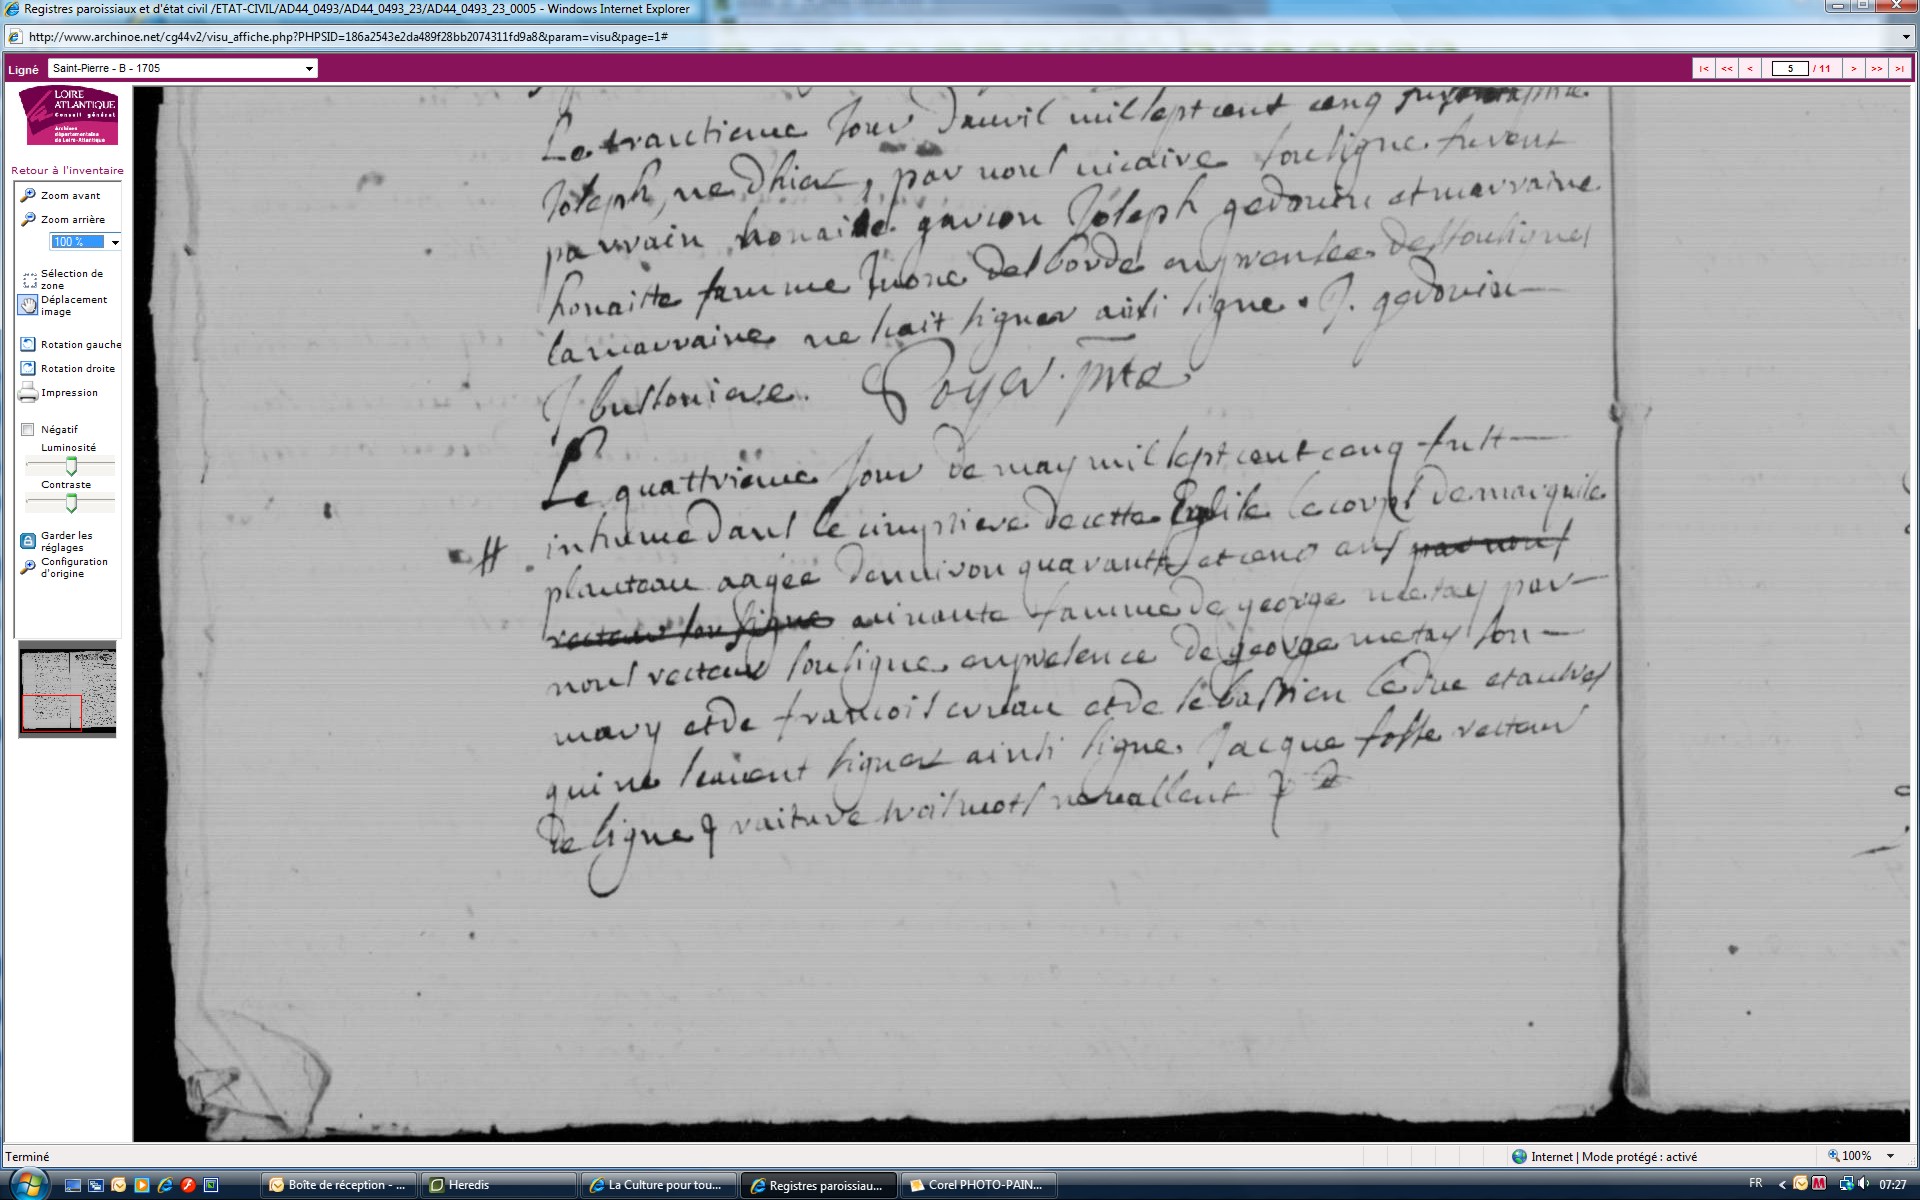 Registres paroissiaux et d'état civil /ETAT-CIVIL/AD44_0493/AD44_0493_23/AD44_0493_23_0005 - Windows Internet Explorer
http://www.archinoe.net/cg44v2/visu_affiche.php?PHPSID=186a2543e2da489f28bb2074311fd9a8&param=visu&page=1#
Ligné
Saint-Pierre - B - 1705
|< << < 5 / 11 > >> >|
LOIRE
ATLANTIQUE
Conseil général
Archives
départementales
de Loire-Atlantique
Retour à l'inventaire
Zoom avant
Zoom arrière
100 %
Sélection de
zone
Déplacement
image
Rotation gauche
Rotation droite
Impression
Négatif
Luminosité
Contraste
Garder les
réglages
Configuration
d'origine
Le trantieme Jour d'auvil mil sept cent cenq
Joseph, ne d'hier, par nous vicaire sousigne furent
parrain honaite garson Joseph gedouin et marraine
honaitte famme des borde en presence des sousignes
la marraine ne sait signer ainsi signe. J. gedouin
J bustoniere. Poyer. ptre
Le quattrieme Jour de may mil sept cent cenq fust
inhume dans le cimptiere de cette Eglise le corps de marquise
planteau aagée d'environ quarantte et cenq ans par nous
recteur sousigne vivante famme de george metay par
nous recteur sousigne en presence de george metay son
mary et de francois evnau et de sebastien leduc et autres
qui ne scavent signer ainsi signe. Jacque fosse recteur
de ligne rature trois mots ne vallent
Terminé
Internet | Mode protégé : activé
100%
Boîte de réception - ...
Heredis
La Culture pour tou...
Registres paroissiau...
Corel PHOTO-PAIN...
FR
07:27